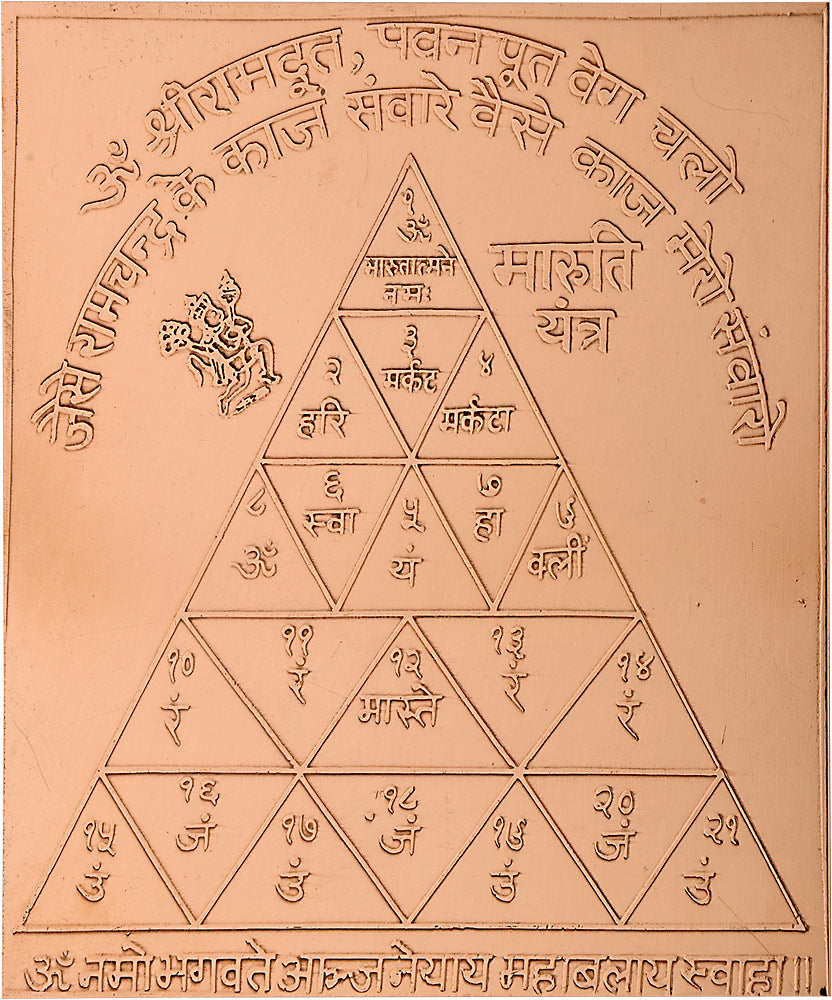 ॐ श्रीरामदूत, पवन पूत वेग चलो
जैसे रामचन्द्र के काज संवारे वैसे काज मेरो संवारो
मारुति
यंत्र
१
ॐ
मारुतात्मने
नमः
२
हरि
३
मर्कट
४
मर्कटा
८
ॐ
६
स्वा
५
यं
७
हा
९
क्लीं
१०
रं
११
रं
१२
मास्ते
१३
रं
१४
रं
१५
उं
१६
जं
१७
उं
१८
जं
१९
उं
२०
जं
२१
उं
ॐ नमो भगवते आन्जनेयाय महाबलाय स्वाहा॥